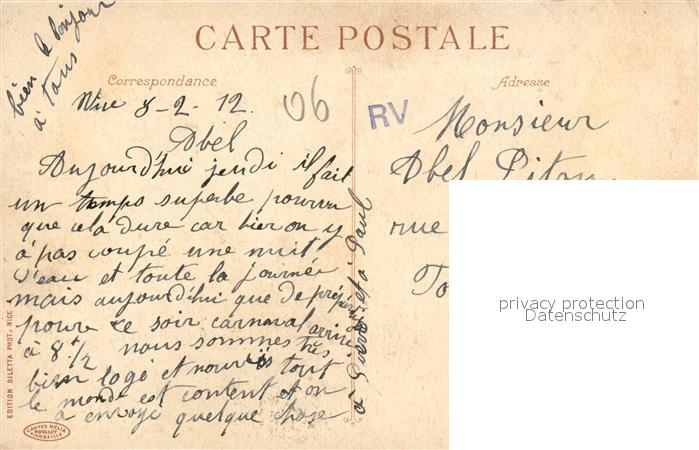 CARTE POSTALE
bien le bonjour
à tous
Correspondance
Nice 8-2-12.
06
Abel
Aujourd'hui jeudi il fait
un temps superbe pourvu
que celà dure car hier on y
à pas coupé une nuit
d'eau et toute la journée
mais aujourd'hui que de
pour ce soir carnaval arrive
à 8 1/2 nous sommes très
bien logé et nourris tout
le monde est content et on
a envoyé quelque chose
à Pierre et à Paul
RV
Adresse
Monsieur
Abel Piton
rue
To
privacy protection
Datenschutz
EDITION GILETTA PHOT. - NICE
CARTES HÉLIA
MOULLOT
MARSEILLE